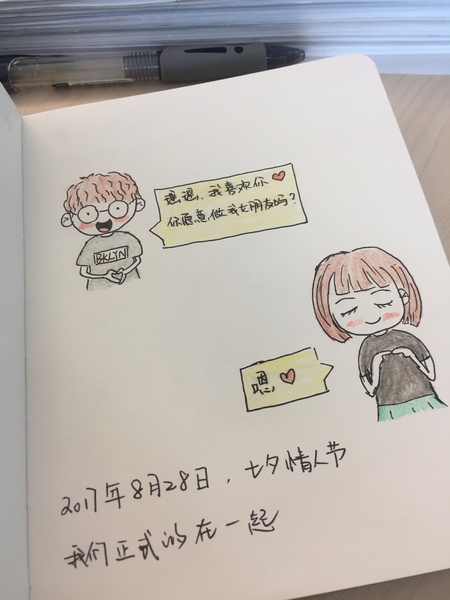 遇遇，我喜欢你
你愿意做我女朋友吗？
BKLYN
嗯
2017年8月28日，七夕情人节
我们正式的在一起